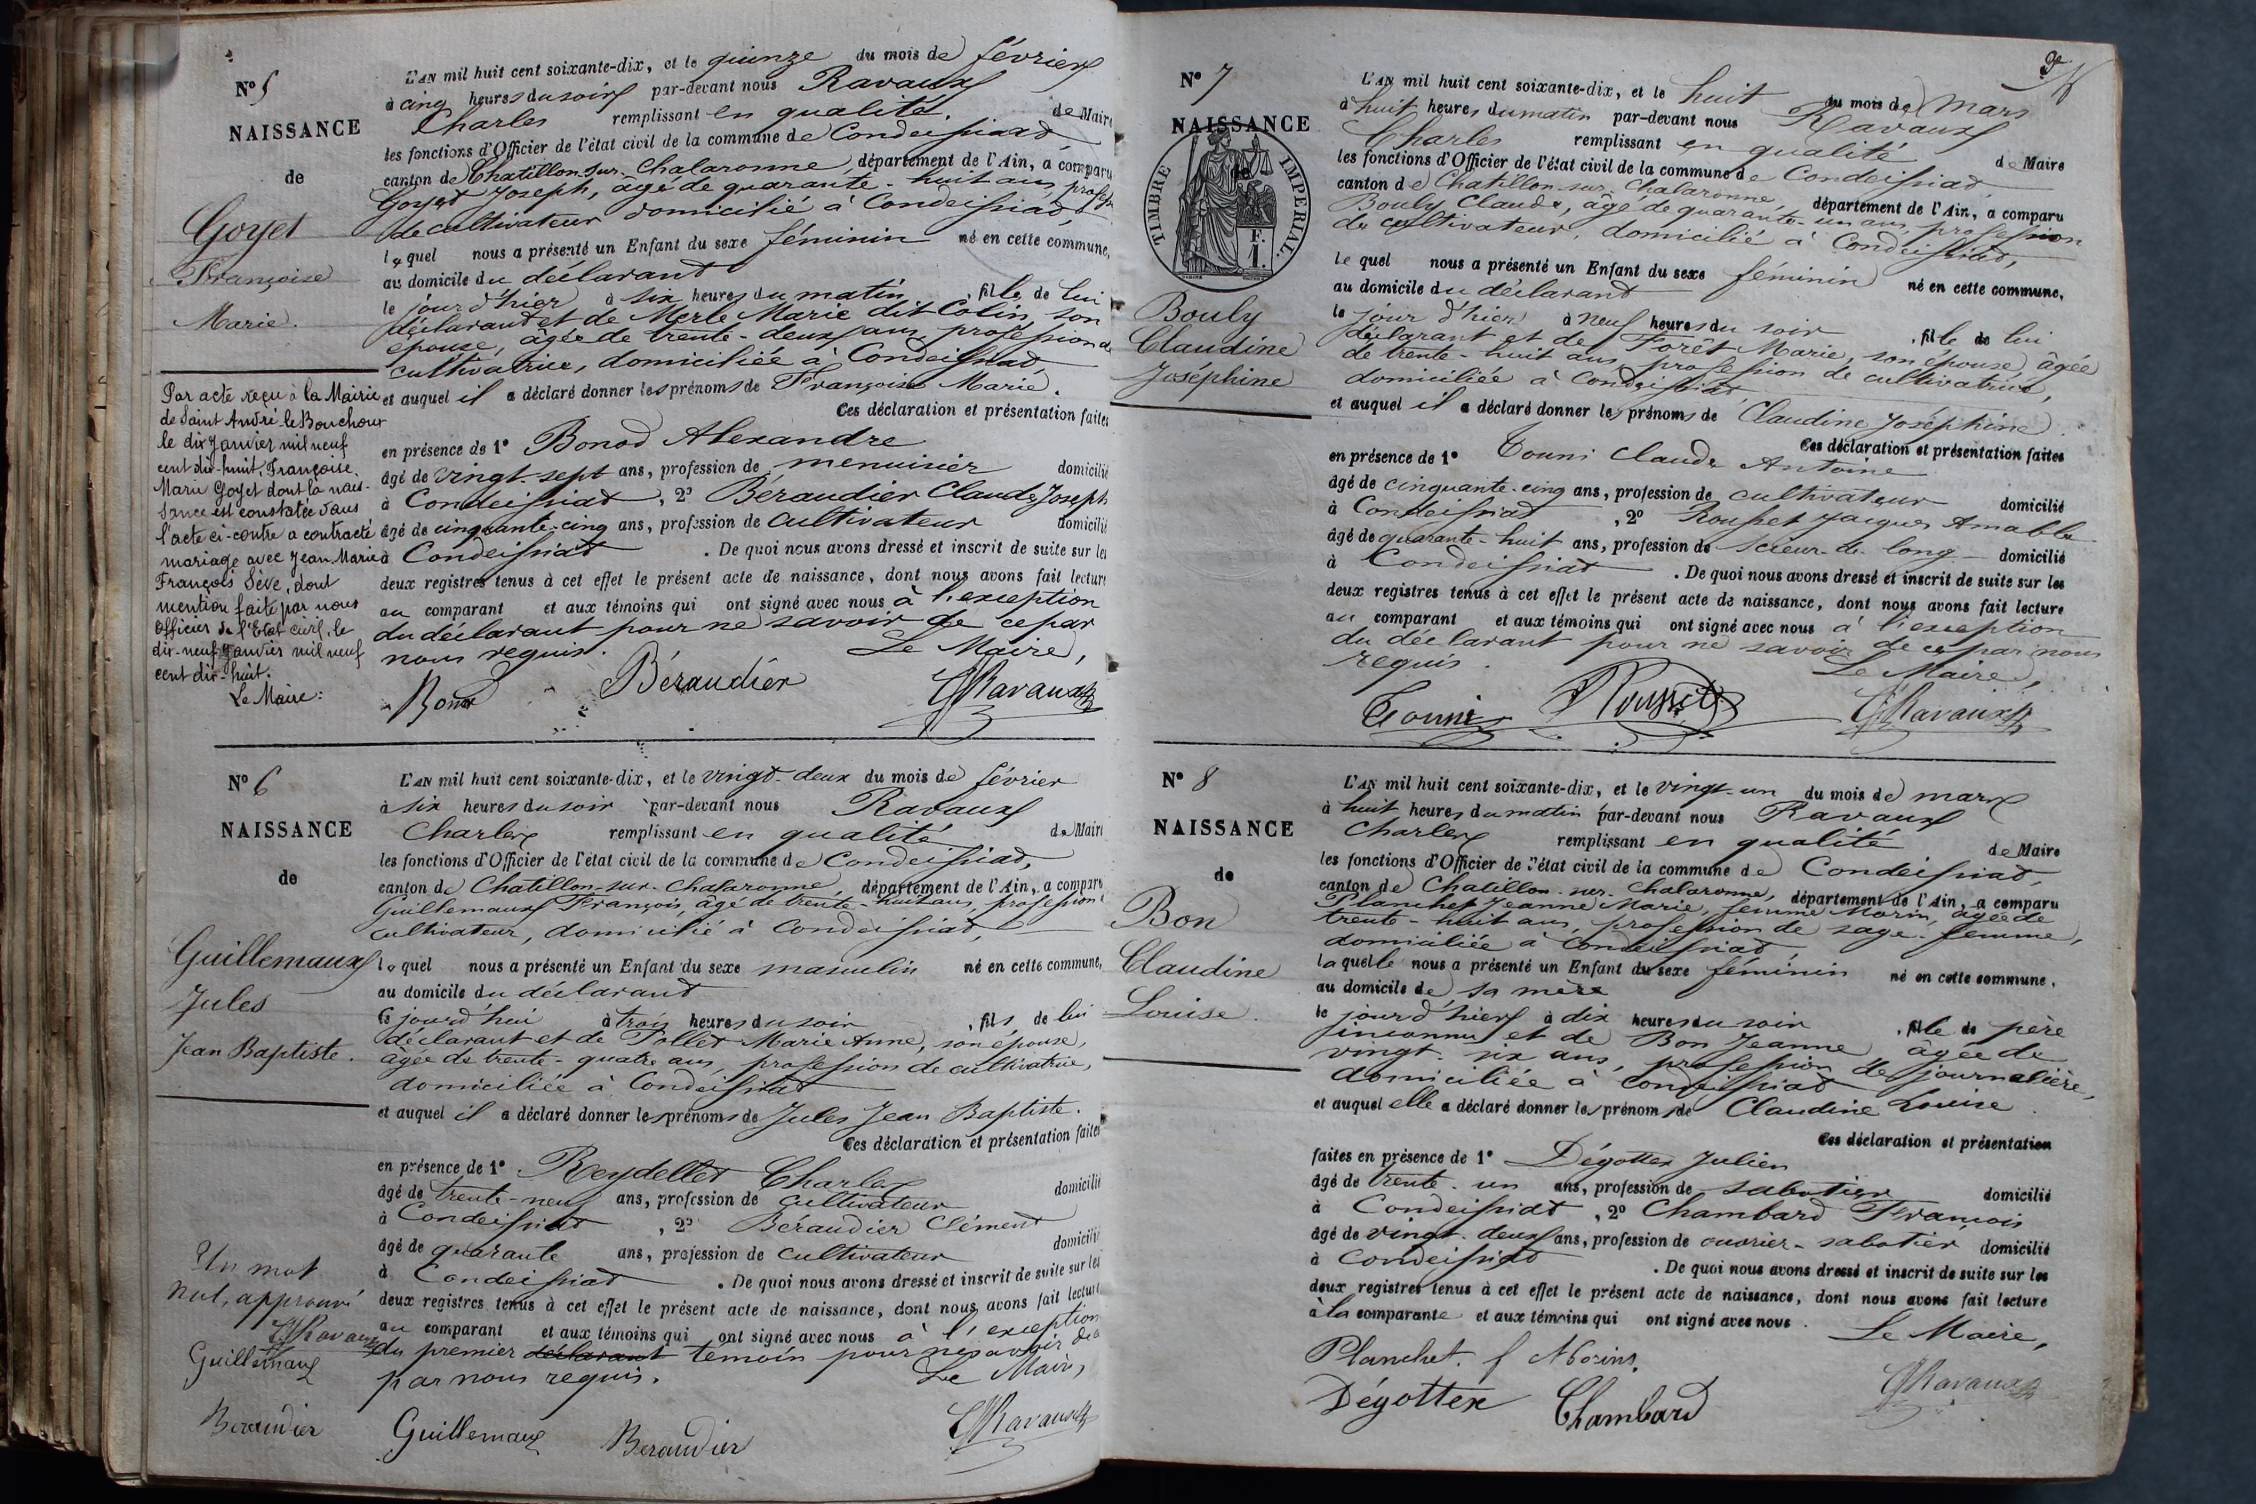 N° 5
NAISSANCE
de
Goyet
Françoise
Marie.
L'AN mil huit cent soixante-dix, et le quinze du mois de février
à cinq heures du soir par-devant nous Ravaux
Charles remplissant en qualité de Maire
les fonctions d'Officier de l'état civil de la commune de Condeissiat
canton de Chatillon-sur-Chalaronne, département de l'Ain, a comparu
Goyet Joseph, âgé de quarante-huit ans, profession
de cultivateur domicilié à Condeissiat
lequel nous a présenté un Enfant du sexe féminin né en cette commune,
au domicile du déclarant
le jour d'hier à six heures du matin, fille de lui
déclarant et de Merle Marie dit Colin, son
épouse, âgée de trente-deux ans profession de
cultivatrice, domiciliée à Condeissiat
et auquel il a déclaré donner les prénoms de Françoise Marie.
Ces déclaration et présentation faites
en présence de 1° Bonod Alexandre
âgé de vingt-sept ans, profession de menuisier domicilié
à Condeissiat, 2° Béraudier Claude Joseph
âgé de cinquante-cinq ans, profession de cultivateur domicilié
à Condeissiat. De quoi nous avons dressé et inscrit de suite sur les
deux registres tenus à cet effet le présent acte de naissance, dont nous avons fait lecture
au comparant et aux témoins qui ont signé avec nous à l'exception
du déclarant pour ne savoir de ce par
nous requis. Le Maire,
Bonod Béraudier CRavaux
Par acte reçu à la Mairie
de Saint André-le-Bouchoux
le dix janvier mil neuf
cent dix-huit, Françoise
Marie Goyet dont la nais-
sance est constatée dans
l'acte ci-contre a contracté
mariage avec Jean Marie
François Sève, dont
mention faite par nous
Officier de l'Etat civil, le
dix-neuf janvier mil neuf
cent dix-huit.
Le Maire:
N° 6
NAISSANCE
de
Guillemaux
Jules
Jean Baptiste.
L'AN mil huit cent soixante-dix, et le vingt-deux du mois de février
à six heures du soir par-devant nous Ravaux
Charles remplissant en qualité de Maire
les fonctions d'Officier de l'état civil de la commune de Condeissiat,
canton de Chatillon-sur-Chalaronne, département de l'Ain, a comparu
Guillemaux François, âgé de trente-huit ans, profession
cultivateur, domicilié à Condeissiat,
lequel nous a présenté un Enfant du sexe masculin né en cette commune,
au domicile du déclarant
ce jourd'hui à trois heures du soir, fils de lui
déclarant et de Pollet Marie Anne, son épouse,
âgée de trente-quatre ans, profession de cultivatrice,
domiciliée à Condeissiat
et auquel il a déclaré donner les prénoms de Jules Jean Baptiste.
Ces déclaration et présentation faites
en présence de 1° Reydellet Charles
âgé de trente-neuf ans, profession de cultivateur domicilié
à Condeissiat, 2° Béraudier Clément
âgé de quarante ans, profession de cultivateur domicilié
à Condeissiat. De quoi nous avons dressé et inscrit de suite sur les
deux registres tenus à cet effet le présent acte de naissance, dont nous avons fait lecture
au comparant et aux témoins qui ont signé avec nous à l'exception
du premier déclarant témoin pour ne savoir de ce
par nous requis. Le Maire,
Guillemaux Beraudier CRavaux
Un mot
nul, approuvé
CRavaux
Guillemaux
Beraudier
N° 7
NAISSANCE
de
TIMBRE IMPERIAL.
1 F.
Bouly
Claudine
Joséphine
L'AN mil huit cent soixante-dix, et le huit du mois de Mars
à huit heures du matin par-devant nous Ravaux
Charles remplissant en qualité de Maire
les fonctions d'Officier de l'état civil de la commune de Condeissiat
canton de Chatillon-sur-Chalaronne, département de l'Ain, a comparu
Bouly Claude, âgé de quarante-un ans, profession
de cultivateur, domicilié à Condeissiat,
lequel nous a présenté un Enfant du sexe féminin né en cette commune,
au domicile du déclarant
le jour d'hier à neuf heures du soir, fille de lui
déclarant et de Forêt Marie, son épouse, âgée
de trente-huit ans, profession de cultivatrice,
domiciliée à Condeissiat
et auquel il a déclaré donner les prénoms de Claudine Joséphine.
Ces déclaration et présentation faites
en présence de 1° Touni Claude Antoine
âgé de cinquante-cinq ans, profession de cultivateur domicilié
à Condeissiat, 2° Rousset Jacques Amable
âgé de quarante-huit ans, profession de scieur-de-long domicilié
à Condeissiat. De quoi nous avons dressé et inscrit de suite sur les
deux registres tenus à cet effet le présent acte de naissance, dont nous avons fait lecture
au comparant et aux témoins qui ont signé avec nous à l'exception
du déclarant pour ne savoir de ce par nous
requis. Le Maire,
Touni Rousset CRavaux
N° 8
NAISSANCE
de
Bon
Claudine
Louise.
L'AN mil huit cent soixante-dix, et le vingt-un du mois de mars
à huit heures du matin par-devant nous Ravaux
Charles remplissant en qualité de Maire
les fonctions d'Officier de l'état civil de la commune de Condeissiat,
canton de Chatillon-sur-Chalaronne, département de l'Ain, a comparu
Planchet Jeanne Marie, femme Morin, âgée de
trente-huit ans, profession de sage-femme,
domiciliée à Condeissiat,
laquelle nous a présenté un Enfant du sexe féminin né en cette commune,
au domicile de sa mère
le jourd'hier à dix heures du soir, fille de père
inconnu et de Bon Jeanne âgée de
vingt-six ans, profession de journalière,
domiciliée à Condeissiat
et auquel elle a déclaré donner les prénoms de Claudine Louise.
Ces déclaration et présentation
faites en présence de 1° Dégottex Julien
âgé de trente-un ans, profession de sabotier domicilié
à Condeissiat, 2° Chambard François
âgé de vingt-deux ans, profession de ouvrier-sabotier domicilié
à Condeissiat. De quoi nous avons dressé et inscrit de suite sur les
deux registres tenus à cet effet le présent acte de naissance, dont nous avons fait lecture
à la comparante et aux témoins qui ont signé avec nous.
Le Maire,
Planchet. f Morins.
Dégottex Chambard CRavaux